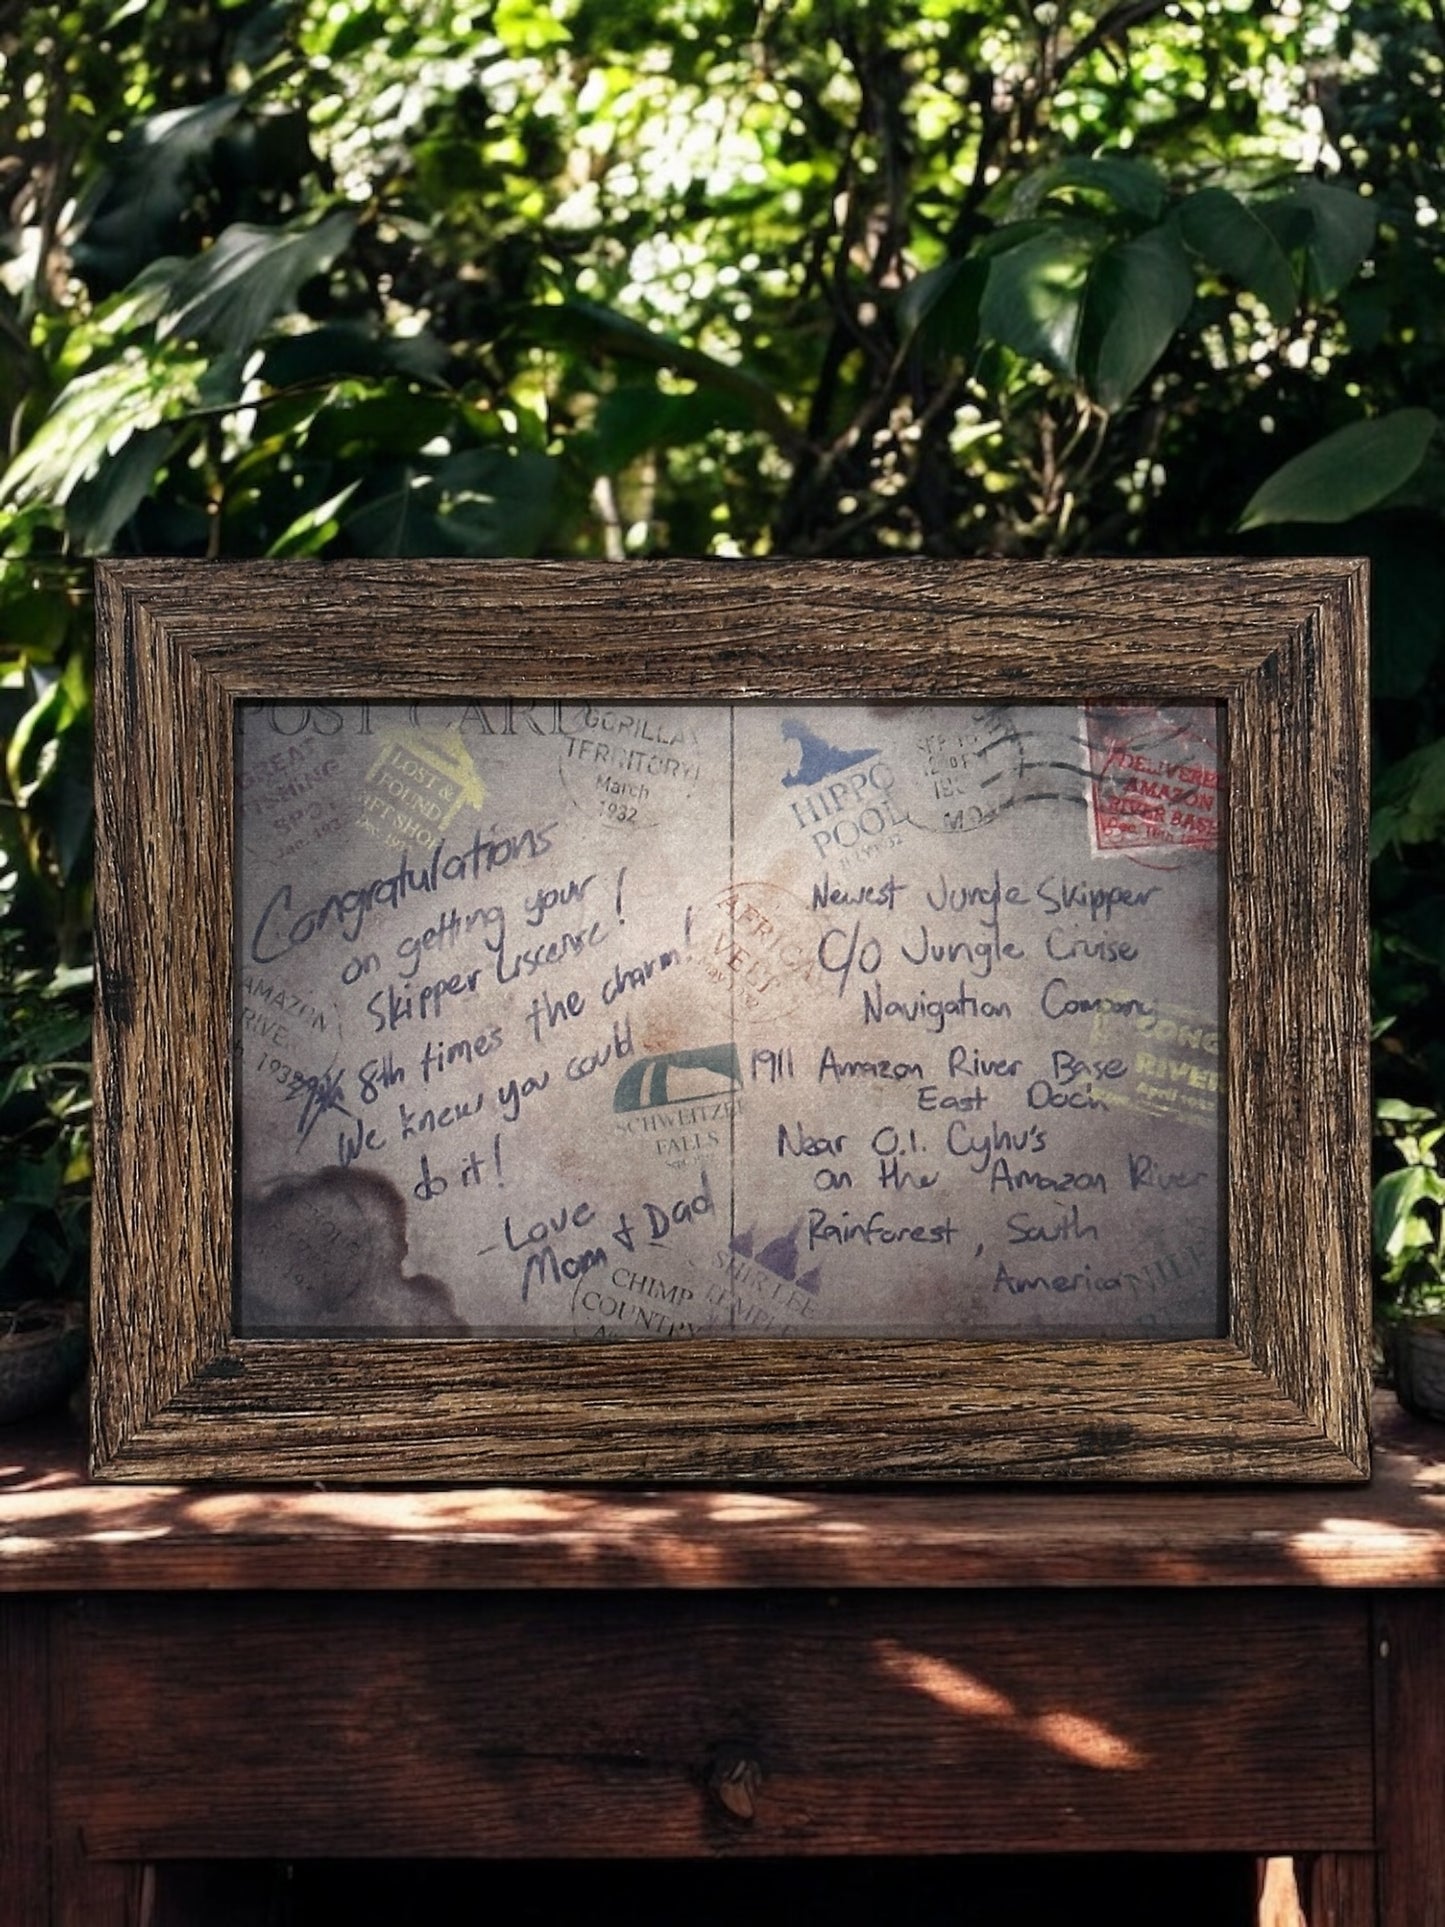 POST CARD
GREAT
FISHING
SPOT
Jan. 193
LOST &
FOUND
GIFT SHOP
Dec. 193
GORILLA
TERRITORY!
March
1932
HIPPO
POOL
MO.
DELIVERED
AMAZON
RIVER BASE
Congratulations
on getting your
Skipper Liscense!
8th times the charm!
We knew you could
do it!
- Love
Mom & Dad
AMAZON
RIVE
1932
AFRICA
VELT
SCHWEITZE
FALLS
CHIMP
COUNTRY
SHIRLEE
TEMPLE
Newest Jungle Skipper
C/O Jungle Cruise
Navigation Company
1911 Amazon River Base
East Dock
Near O.I. Cyhu's
on the Amazon River
Rainforest, South
America
CONG
RIVER
April
NILE